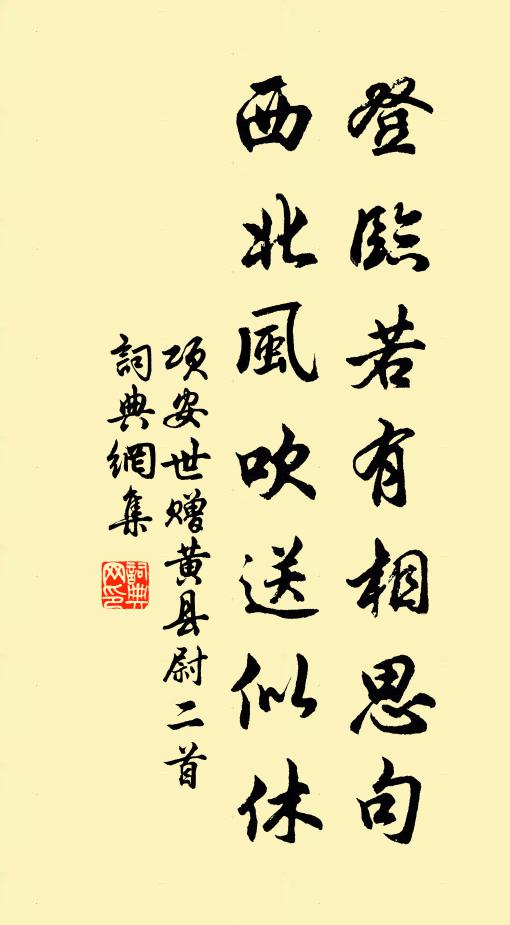 登臨若有相思句
西北風吹送似休
项安世赠黄县尉二首
詞典網集
詞典网印